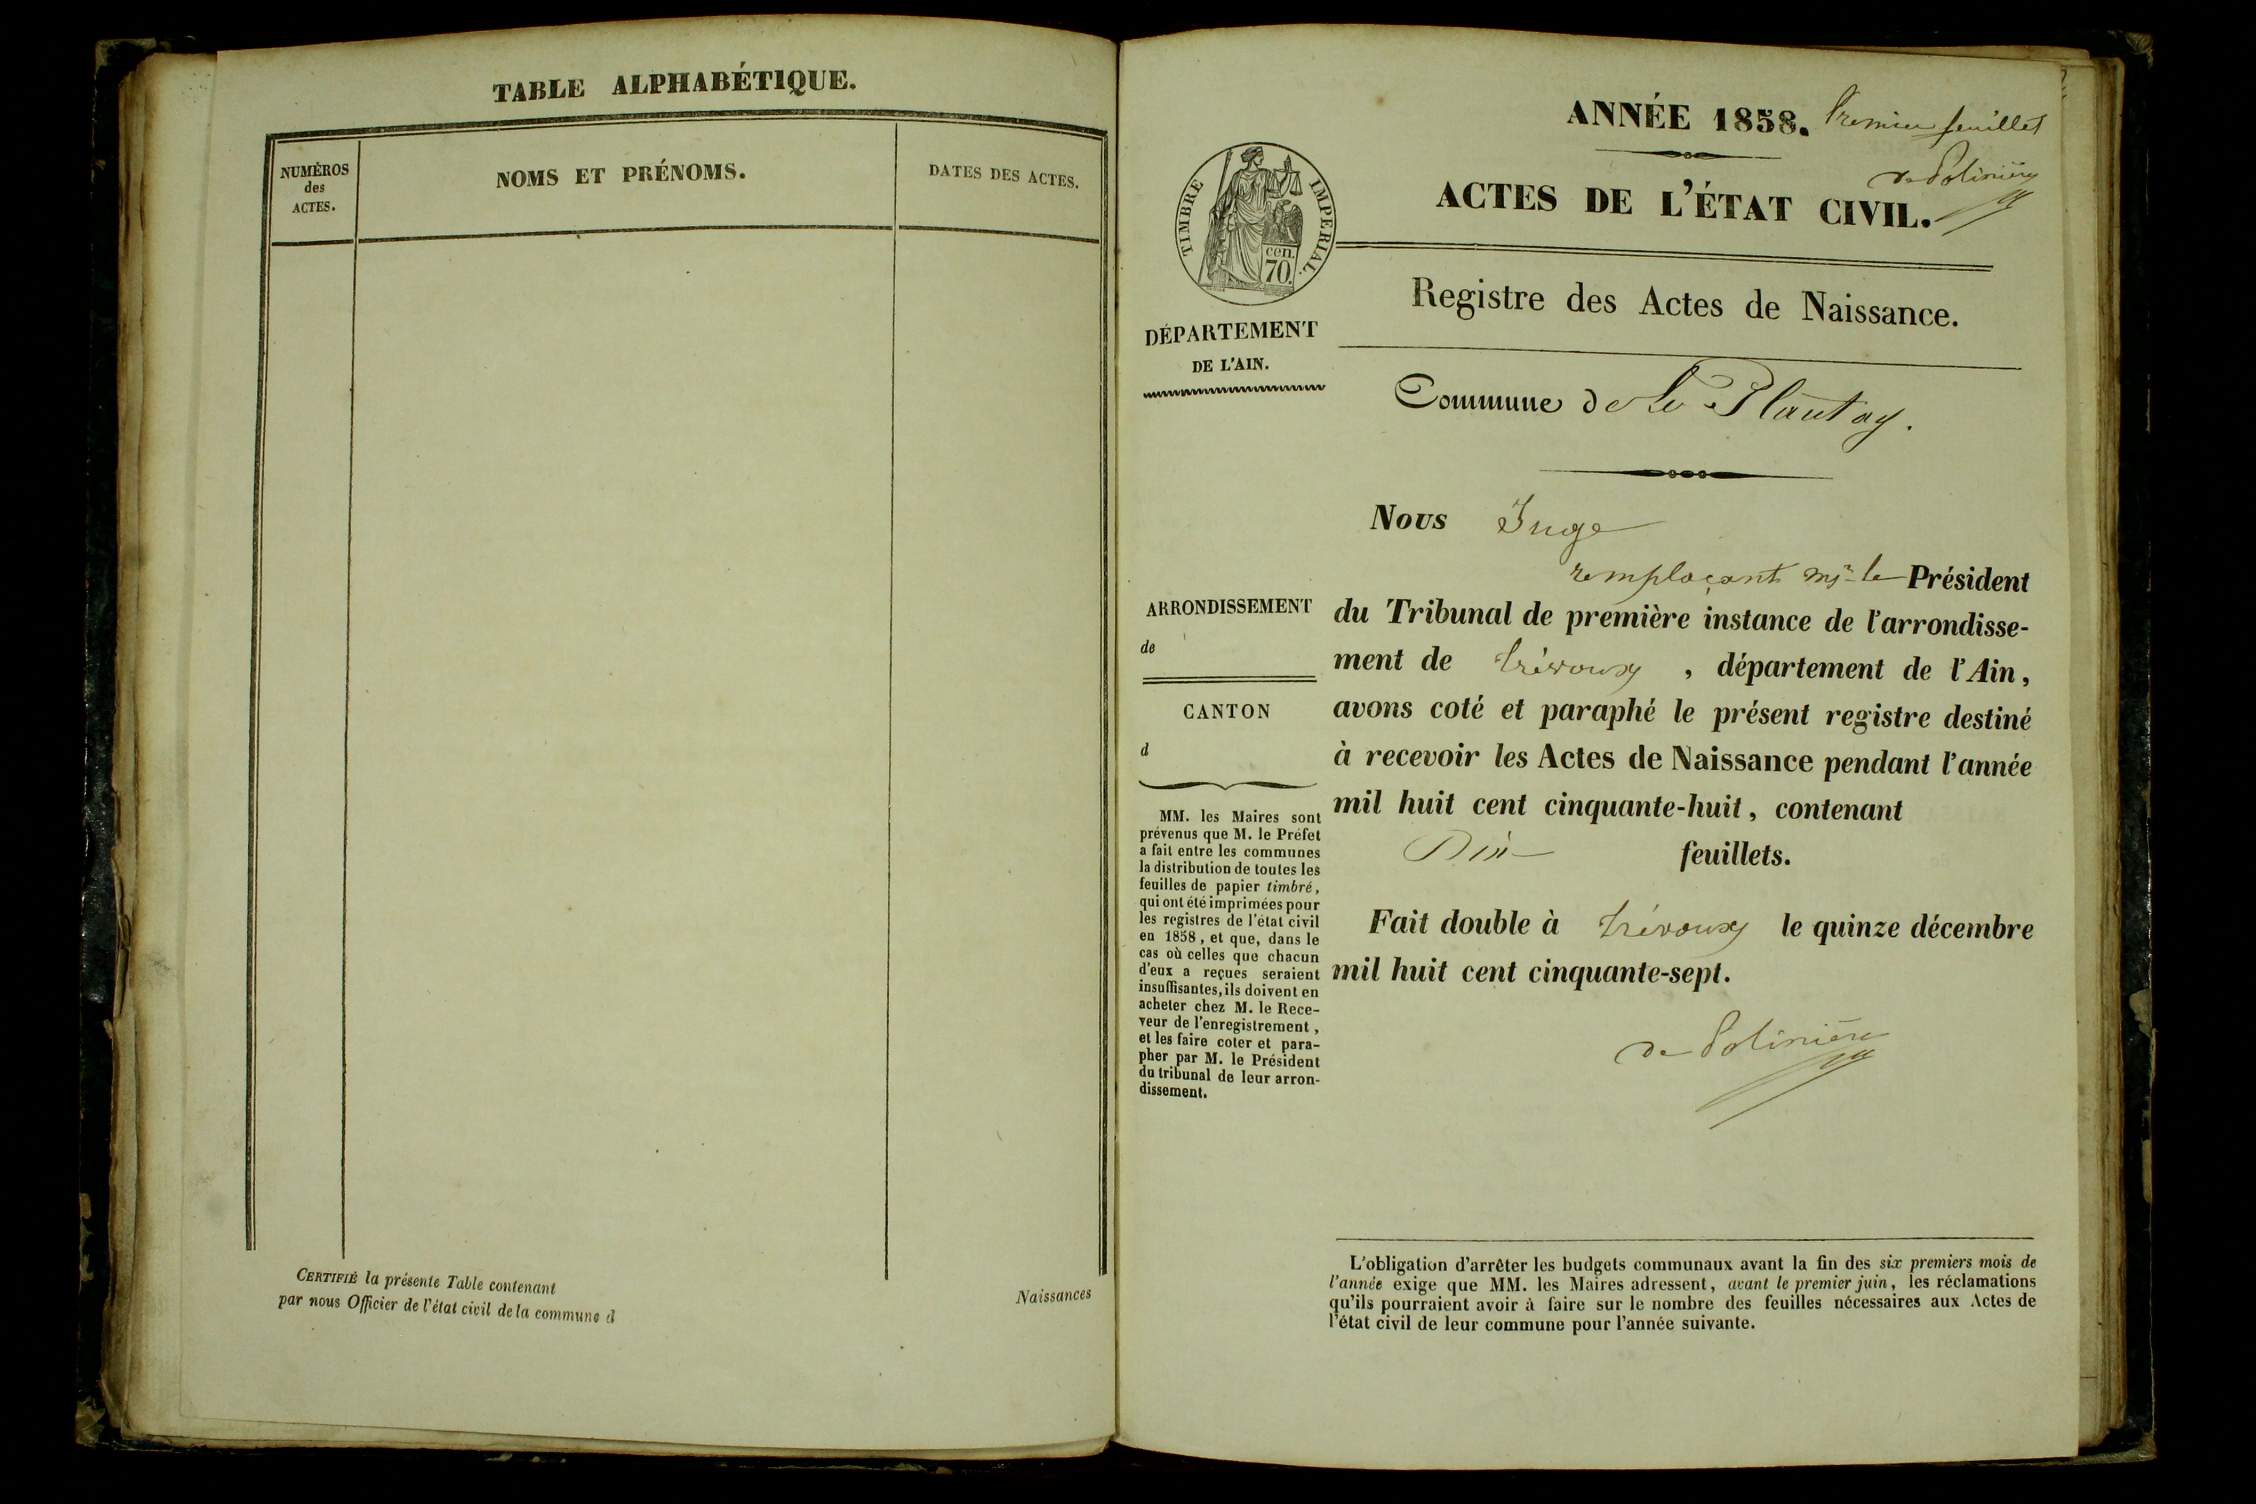 TABLE ALPHABÉTIQUE.
NUMÉROS
des
ACTES.
NOMS ET PRÉNOMS.
DATES DES ACTES.
CERTIFIÉ la présente Table contenant
Naissances
par nous Officier de l'état civil de la commune d
ANNÉE 1858. Premier feuillet
de Polinière
ACTES DE L'ÉTAT CIVIL.
TIMBRE IMPERIAL.
cen.
70.
Registre des Actes de Naissance.
DÉPARTEMENT
DE L'AIN.
Commune de Le Plantay.
Nous Juge
remplaçant Mr le Président
du Tribunal de première instance de l'arrondisse-
ment de Trévoux, département de l'Ain,
avons coté et paraphé le présent registre destiné
à recevoir les Actes de Naissance pendant l'année
mil huit cent cinquante-huit, contenant
Dix feuillets.
Fait double à Trévoux le quinze décembre
mil huit cent cinquante-sept.
de Polinière
ARRONDISSEMENT
de
CANTON
d
MM. les Maires sont
prévenus que M. le Préfet
a fait entre les communes
la distribution de toutes les
feuilles de papier timbré,
qui ont été imprimées pour
les registres de l'état civil
en 1858, et que, dans le
cas où celles que chacun
d'eux a reçues seraient
insuffisantes, ils doivent en
acheter chez M. le Rece-
veur de l'enregistrement,
et les faire coter et para-
pher par M. le Président
du tribunal de leur arron-
dissement.
L'obligation d'arrêter les budgets communaux avant la fin des six premiers mois de
l'année exige que MM. les Maires adressent, avant le premier juin, les réclamations
qu'ils pourraient avoir à faire sur le nombre des feuilles nécessaires aux Actes de
l'état civil de leur commune pour l'année suivante.